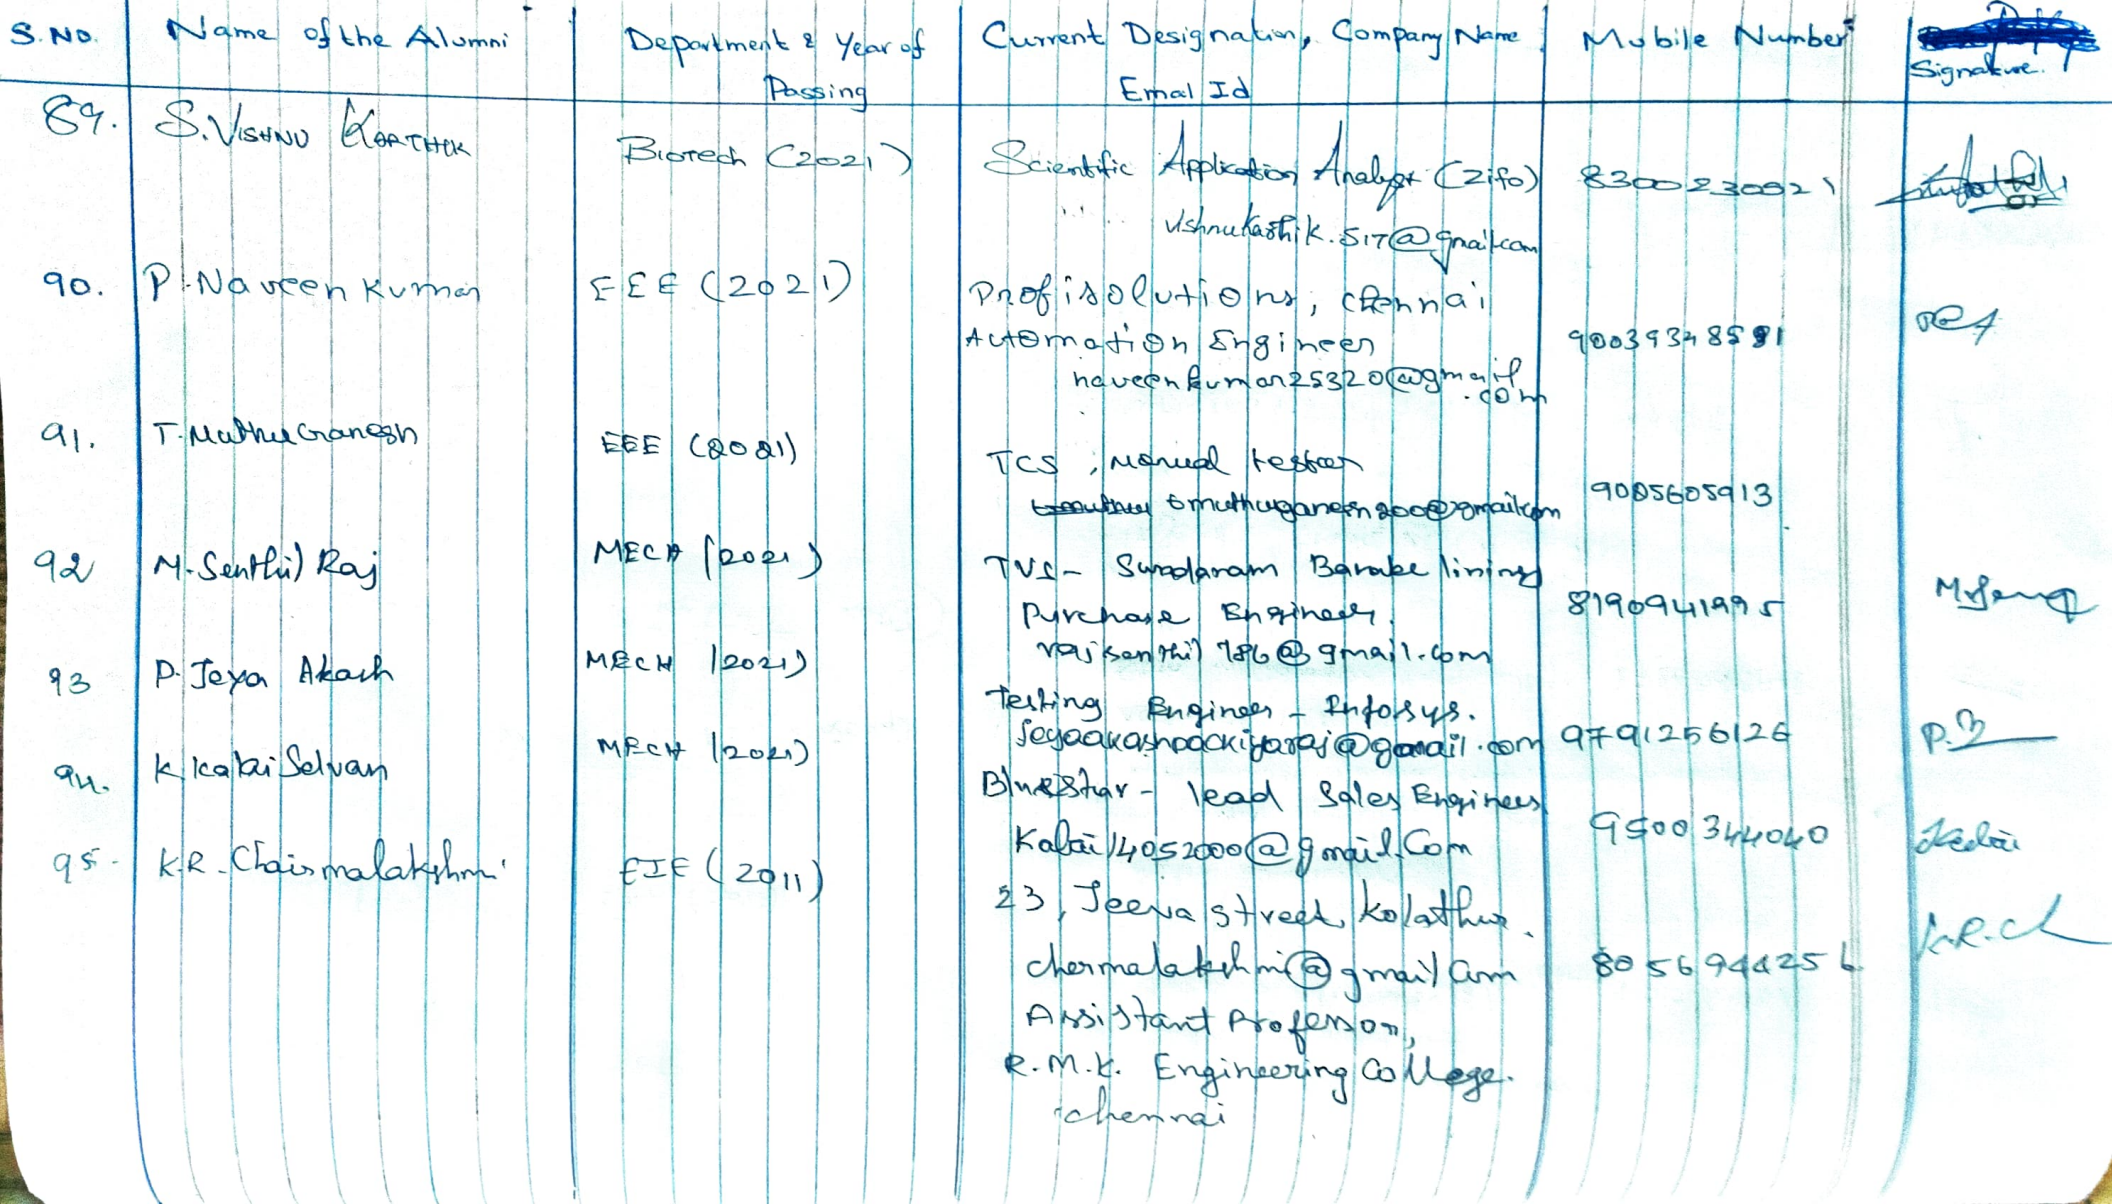 S.NO. Name of the Alumni Department & Year of Passing Current Designation, Company Name Emal Id Mobile Number Signature.
89. S. VISHNU KARTHIK Biotech (2021) Scientific Application Analyst (Zifo) 8300230021
vishnukarthik.517@gmail.com
90. P. Naveen Kumar EEE (2021) Profisolutions, Chennai
Automation Engineer 90039348591
naveenkumar25320@gmail.com
91. T. MuthuGanesh EEE (2021) TCS, Manual tester
tmuthuganesh200@gmail.com 9005605913
92 M. Senthil Raj MECH (2021) TVS - Sundaram Barake lining
Purchase Engineer. 8190941995
rajsenthil786@gmail.com
93 P. Jeya Akash MECH (2021) Testing Engineer - Infosys.
jeyaakashpackiyaraj@gmail.com 9791256126
94. K. Kalai Selvan MECH (2021) BlueStar - lead Sales Engineer
Kalai14052000@gmail.Com 9500344040 Kalai
95. K.R. Chairmalakshmi EIE (2011) 23, Jeeva street, Kolathur.
chermalakshmi@gmail.com 8056944256 K.R.Ch
Assistant Professor,
R.M.K. Engineering College.
chennai